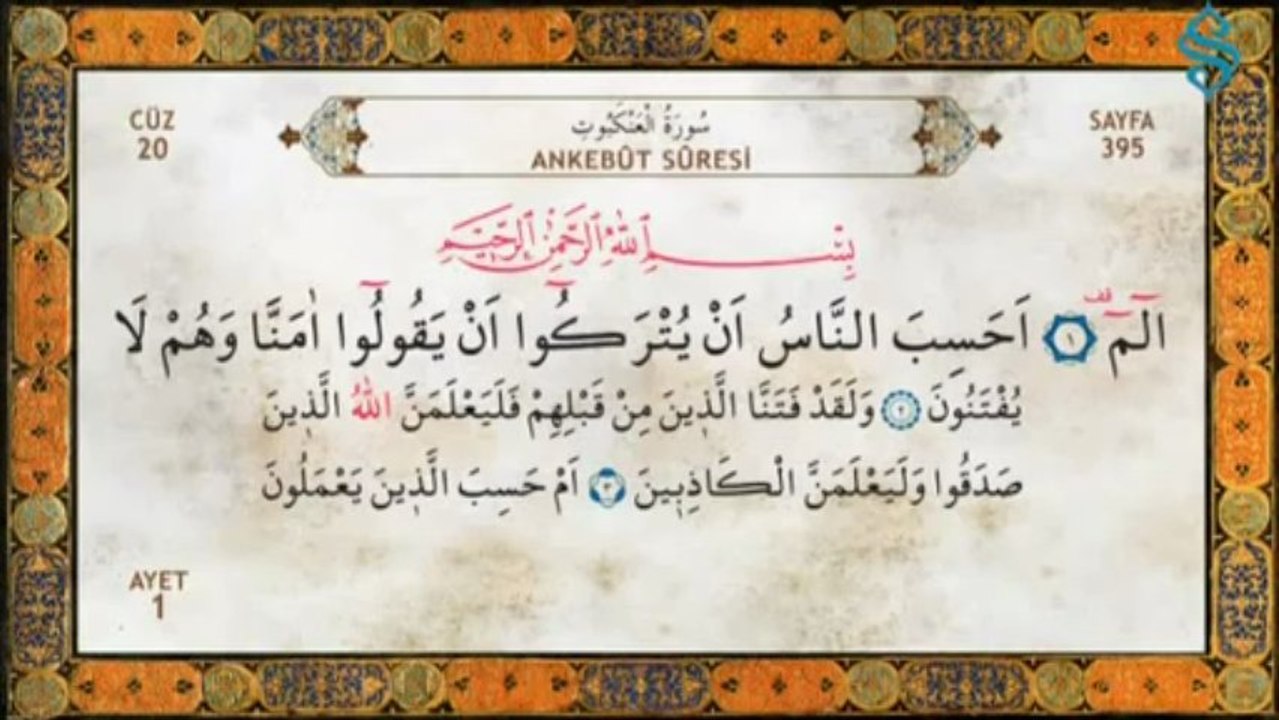 CÜZ
20
سُورَةُ الْعَنْكَبُوتِ
ANKEBÛT SÛRESİ
SAYFA
395
بِسْمِ اللّٰهِ الرَّحْمٰنِ الرَّحِيْمِ
الٓمٓ ۚ ﴿١﴾ اَحَسِبَ النَّاسُ اَنْ يُتْرَكُٓوا اَنْ يَقُولُٓوا اٰمَنَّا وَهُمْ لَا
يُفْتَنُونَ ﴿٢﴾ وَلَقَدْ فَتَنَّا الَّذ۪ينَ مِنْ قَبْلِهِمْ فَلَيَعْلَمَنَّ اللّٰهُ الَّذ۪ينَ
صَدَقُوا وَلَيَعْلَمَنَّ الْكَاذِب۪ينَ ﴿٣﴾ اَمْ حَسِبَ الَّذ۪ينَ يَعْمَلُونَ
AYET
1